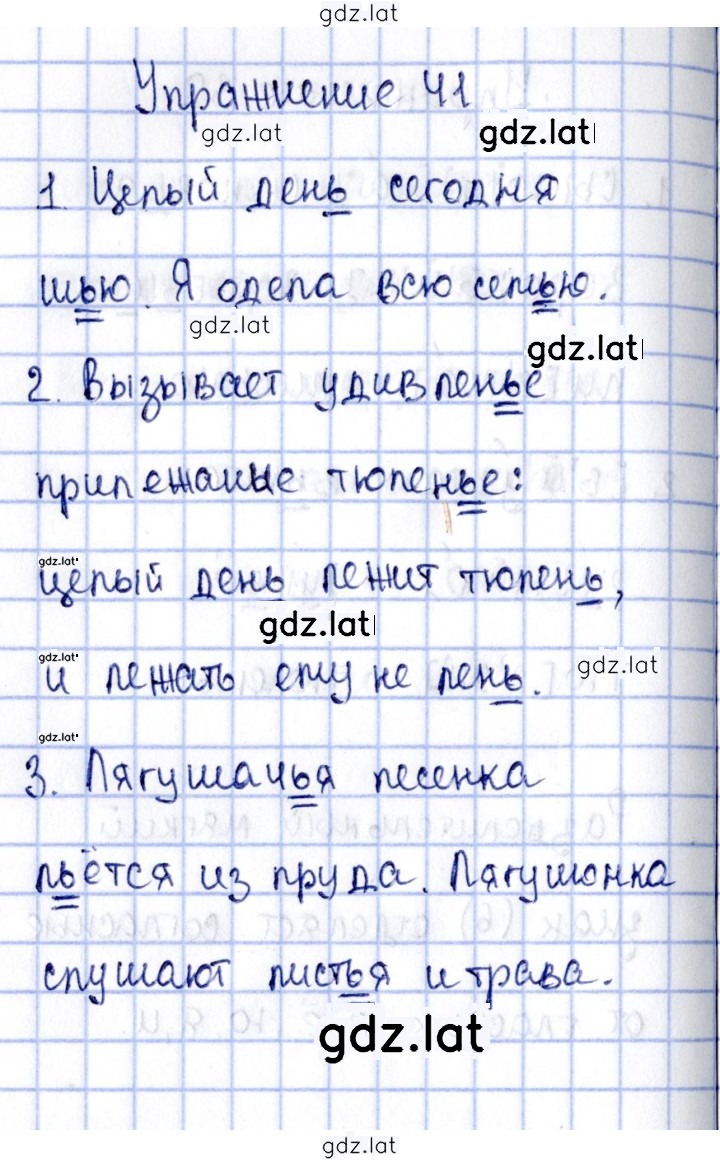 gdz.lat
Упражнение 41
gdz.lat gdz.lat
1. Целый день сегодня
шью. Я одела всю семью.
gdz.lat
gdz.lat
2. Вызывает удивленье
прилежанье тюленье:
gdz.lat
целый день лежит тюлень,
gdz.lat
gdz.lat gdz.lat
и лежать ему не лень.
gdz.lat
3. Лягушачья песенка
льётся из пруда. Лягушонка
слушают листья и трава.
gdz.lat
gdz.lat